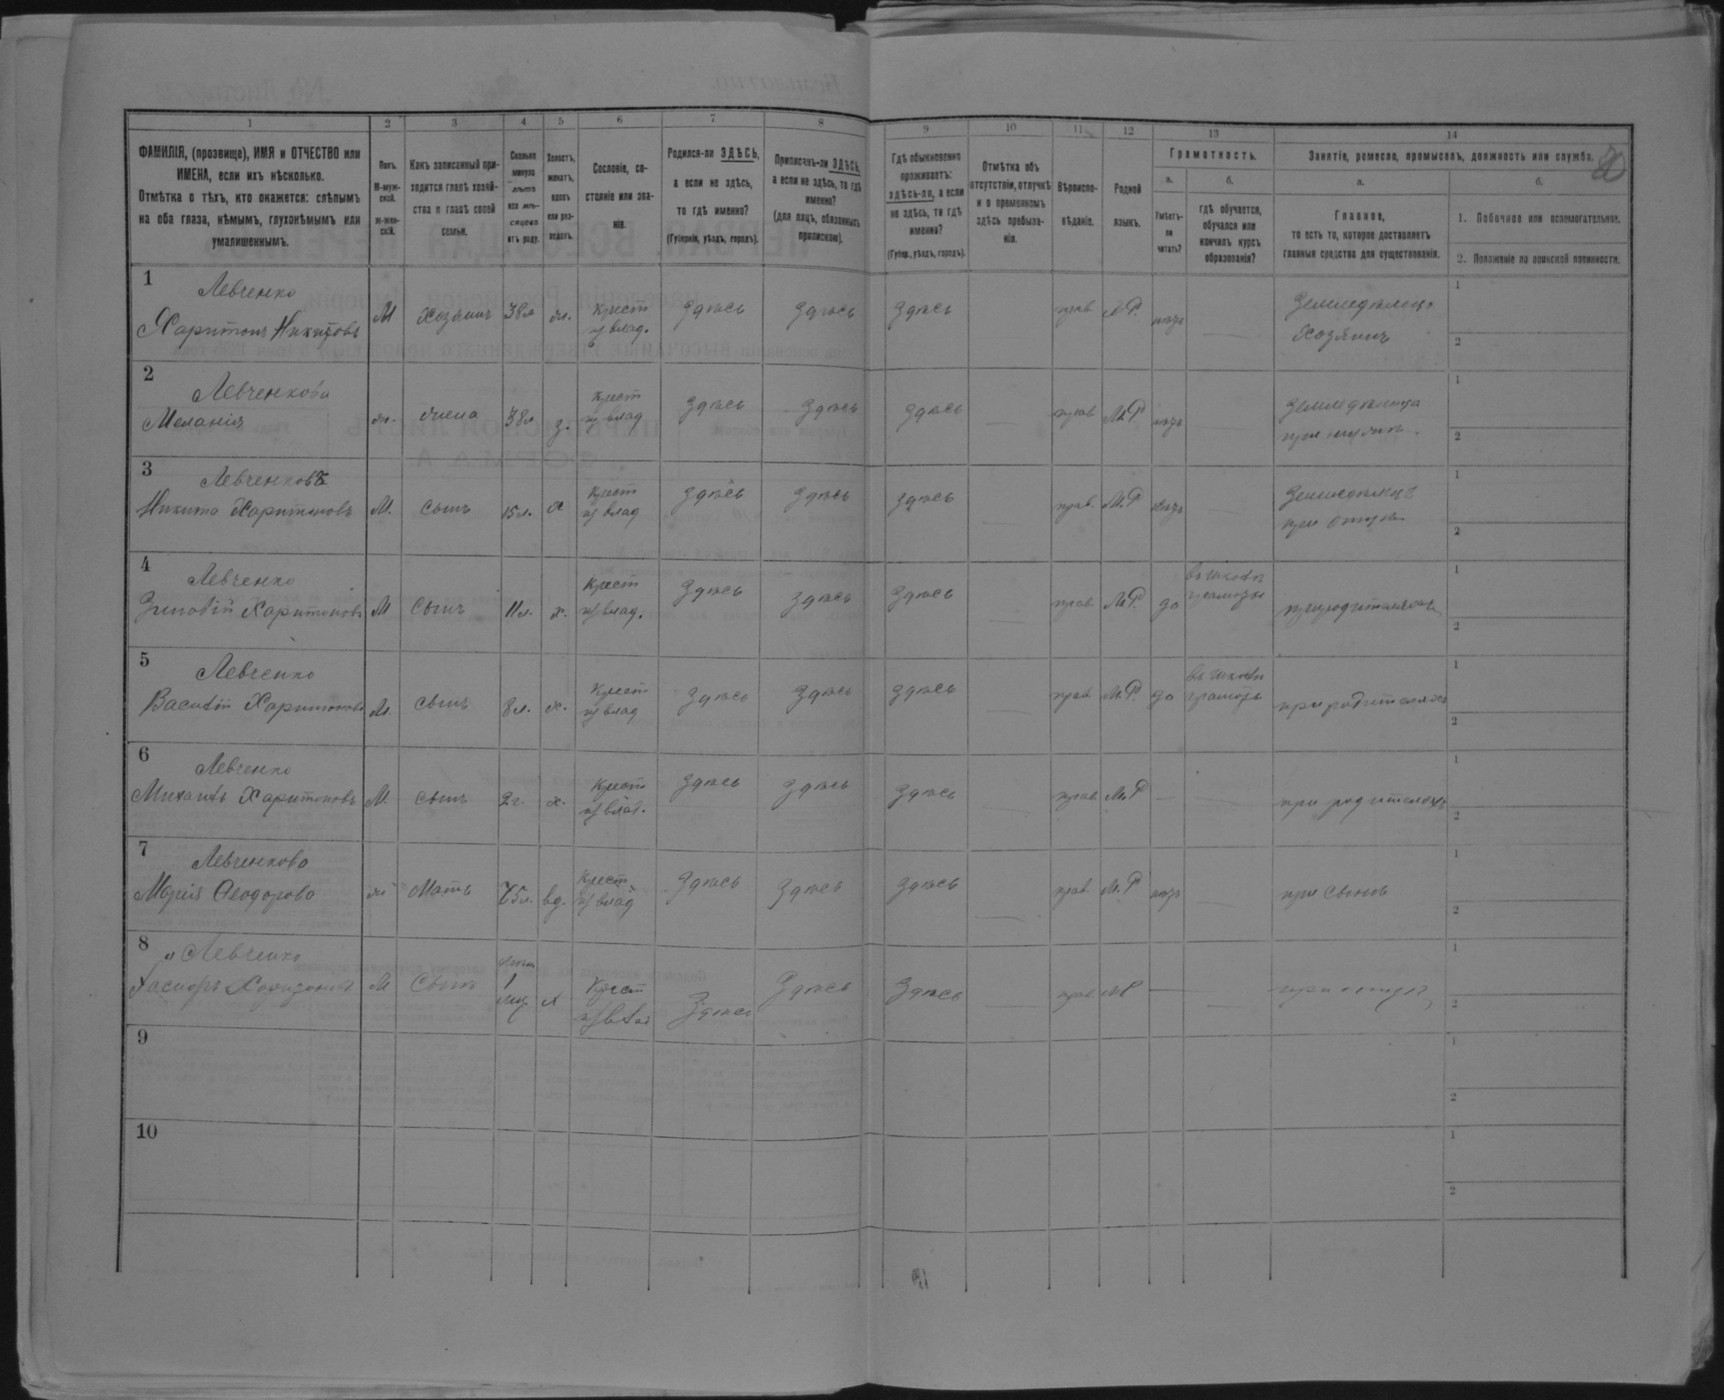 1 2 3 4 5 6 7 8 9 10 11 12 13 14
ФАМИЛІЯ, (прозвище), ИМЯ и ОТЧЕСТВО или
ИМЕНА, если ихъ нѣсколько.
Отмѣтка о тѣхъ, кто окажется: слѣпымъ
на оба глаза, нѣмымъ, глухонѣмымъ или
умалишеннымъ.
Полъ.
М-муж-
ской.
ж-жен-
скій.
Какъ записанный при-
ходится главѣ хозяй-
ства и главѣ своей
семьи.
Сколько
минуло
лѣтъ
или мѣ-
сяцевъ
отъ роду.
Холостъ,
женатъ,
вдовъ
или раз-
веденъ.
Сословіе, со-
стояніе или зва-
ніе.
Родился-ли ЗДѢСЬ,
а если не здѣсь,
то гдѣ именно?
(Губернія, уѣздъ, городъ).
Приписанъ-ли ЗДѢСЬ,
а если не здѣсь, то гдѣ
именно?
(для лицъ, обязанныхъ
припискою).
Гдѣ обыкновенно
проживаетъ:
здѣсь-ли, а если
не здѣсь, то гдѣ
именно?
(Губер., уѣздъ, городъ).
Отмѣтка объ
отсутствіи, отлучкѣ
и о временномъ
здѣсь пребыва-
ніи.
Вѣроиспо-
вѣданіе.
Родной
языкъ.
Грамотность.
а.
Умѣетъ-
ли
читать?
б.
гдѣ обучается,
обучался или
кончилъ курсъ
образованія?
Занятіе, ремесло, промыселъ, должность или служба.
а.
Главное,
то есть то, которое доставляетъ
главныя средства для существованія.
б.
1. Побочное или вспомогательное.
2. Положеніе по воинской повинности.
1
Левченко
Харитонъ Никитовъ М Хозяинъ 38л жн. Крест Здѣсь Здѣсь Здѣсь прав М.Р. Земледѣлецъ
из влад. Хозяинъ
1
2
2
Левченкова
Меланія ж. жена 38л з. Крест Здѣсь Здѣсь Здѣсь прав М.Р.
из влад
1
2
3
Левченко
Никита Харитоновъ М. сынъ 15л. х Крест Здѣсь Здѣсь Здѣсь прав. М.Р Земледѣлецъ
из влад при отцѣ
1
2
4
Левченко
Зиновій Харитоновъ М сынъ 11л. х. Крест Здѣсь Здѣсь Здѣсь прав. М.Р. да при родителяхъ
из влад.
1
2
5
Левченко
Василій Харитоновъ М. сынъ 8л. х. Крест Здѣсь Здѣсь Здѣсь прав М.Р. да при родителяхъ
из влад
1
2
6
Левченко
Михаилъ Харитоновъ М. сынъ 2г. х. Крест Здѣсь Здѣсь Здѣсь прав М.Р — при родителяхъ
из влад.
1
2
7
Левченкова
Марія Ѳеодорова ж Мать 75л. вд. Крест Здѣсь Здѣсь Здѣсь прав М.Р при сынѣ
из влад
1
2
8
Левченко
М Сынъ 1 х Крест Здѣсь Здѣсь Здѣсь прав МР — при отцѣ
1
2
9
1
2
10
1
2